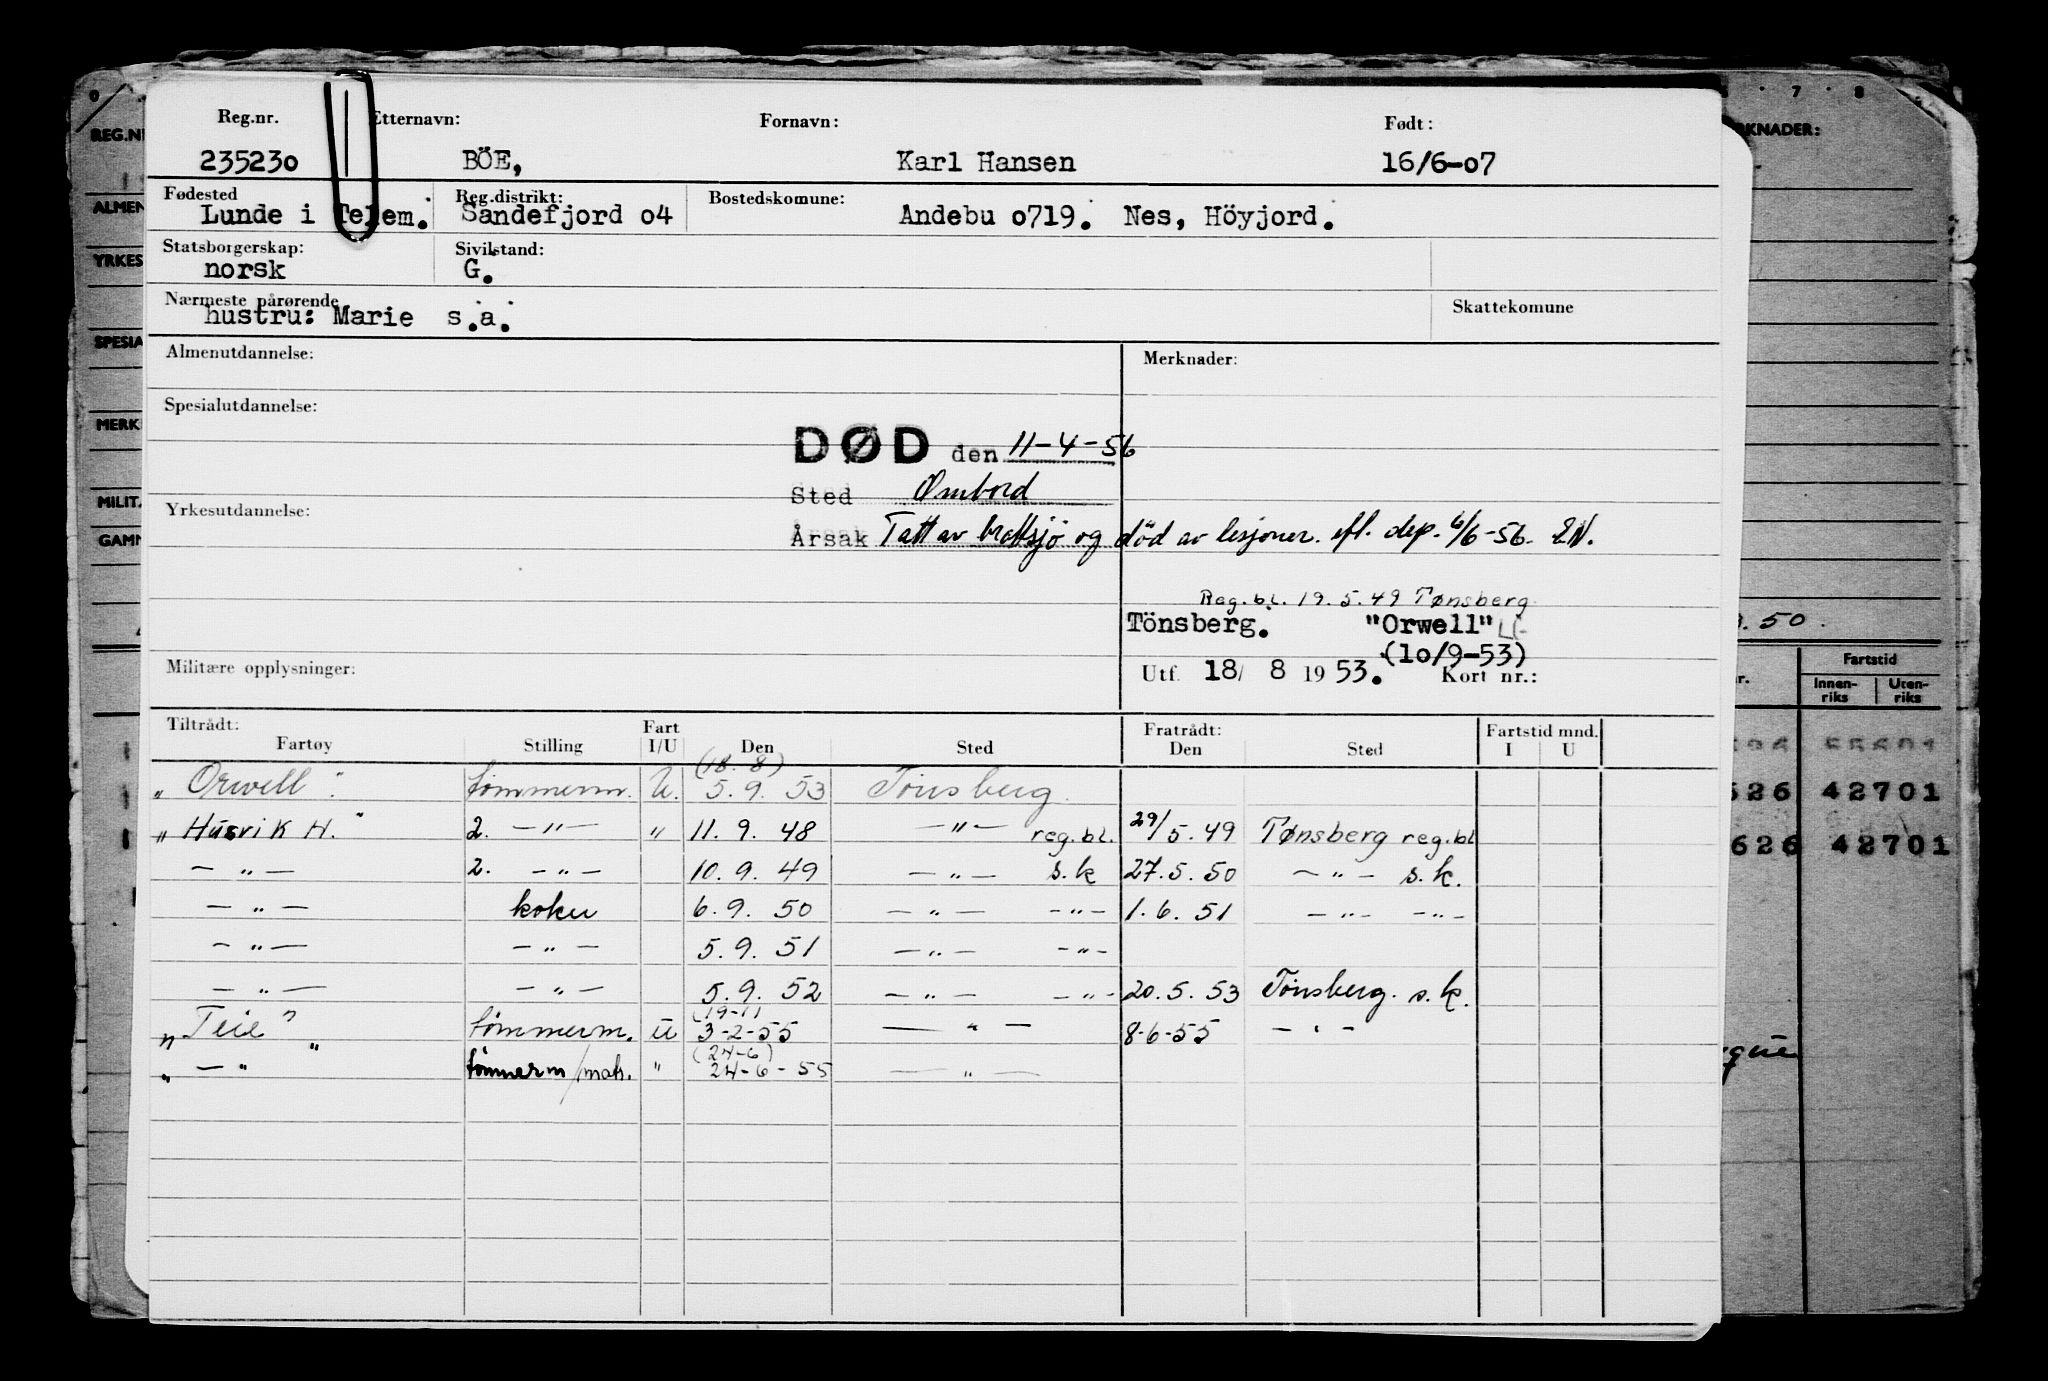 Reg.nr. Etternavn: Fornavn: Født:
235230 BÖE, Karl Hansen 16/6-07
Fødested Reg.distrikt: Bostedskomune:
Lunde i Telem. Sandefjord o4 Andebu o719. Nes, Höyjord.
Statsborgerskap: Sivilstand:
norsk G.
Nærmeste pårørende Skattekomune
hustru: Marie s.a.
Almenutdannelse: Merknader:
Spesialutdannelse:
DØD den 11-4-56
Sted Ombord
Yrkesutdannelse:
Årsak Tatt av brottsjö og död av lesjoner. efl. dep. 6/6-56. EN.
Reg.bl. 19.5.49 Tønsberg
Tönsberg. "Orwell"
(10/9-53)
Militære opplysninger: Utf. 18/ 8 1953. Kort nr.:
Tiltrådt: Fart Fratrådt: Fartstid mnd.
Fartøy Stilling I/U Den Sted Den Sted I U
(18.8)
"Orwell" tömmerm. U. 5.9.53 Tönsberg
"Husvik H." 2. -"- " 11.9.48 -"- reg.bl. 29/5.49 Tønsberg reg.bl
-"- 2. -"- 10.9.49 -"- s.k 27.5.50 -"- s.k.
-"- kokk 6.9.50 -"- -"- 1.6.51 -"- -"-
-"- -"- 5.9.51 -"- -"-
-"- -"- 5.9.52 -"- -"- 20.5.53 Tönsberg. s.k.
(19-11
"Teie" tömmerm. U 3-2-55 -"- 8-6-55 -"-
(24-6)
" -"- tömmerm/mats. " 24-6-55 -"-
REG.N
ALMEN
YRKES
SPESIA
MERK
MILIT
GAMM
7 8
KNADER:
.50.
Fartstid
r. Innen-riks Uten-riks
55601
626 42701
626 42701